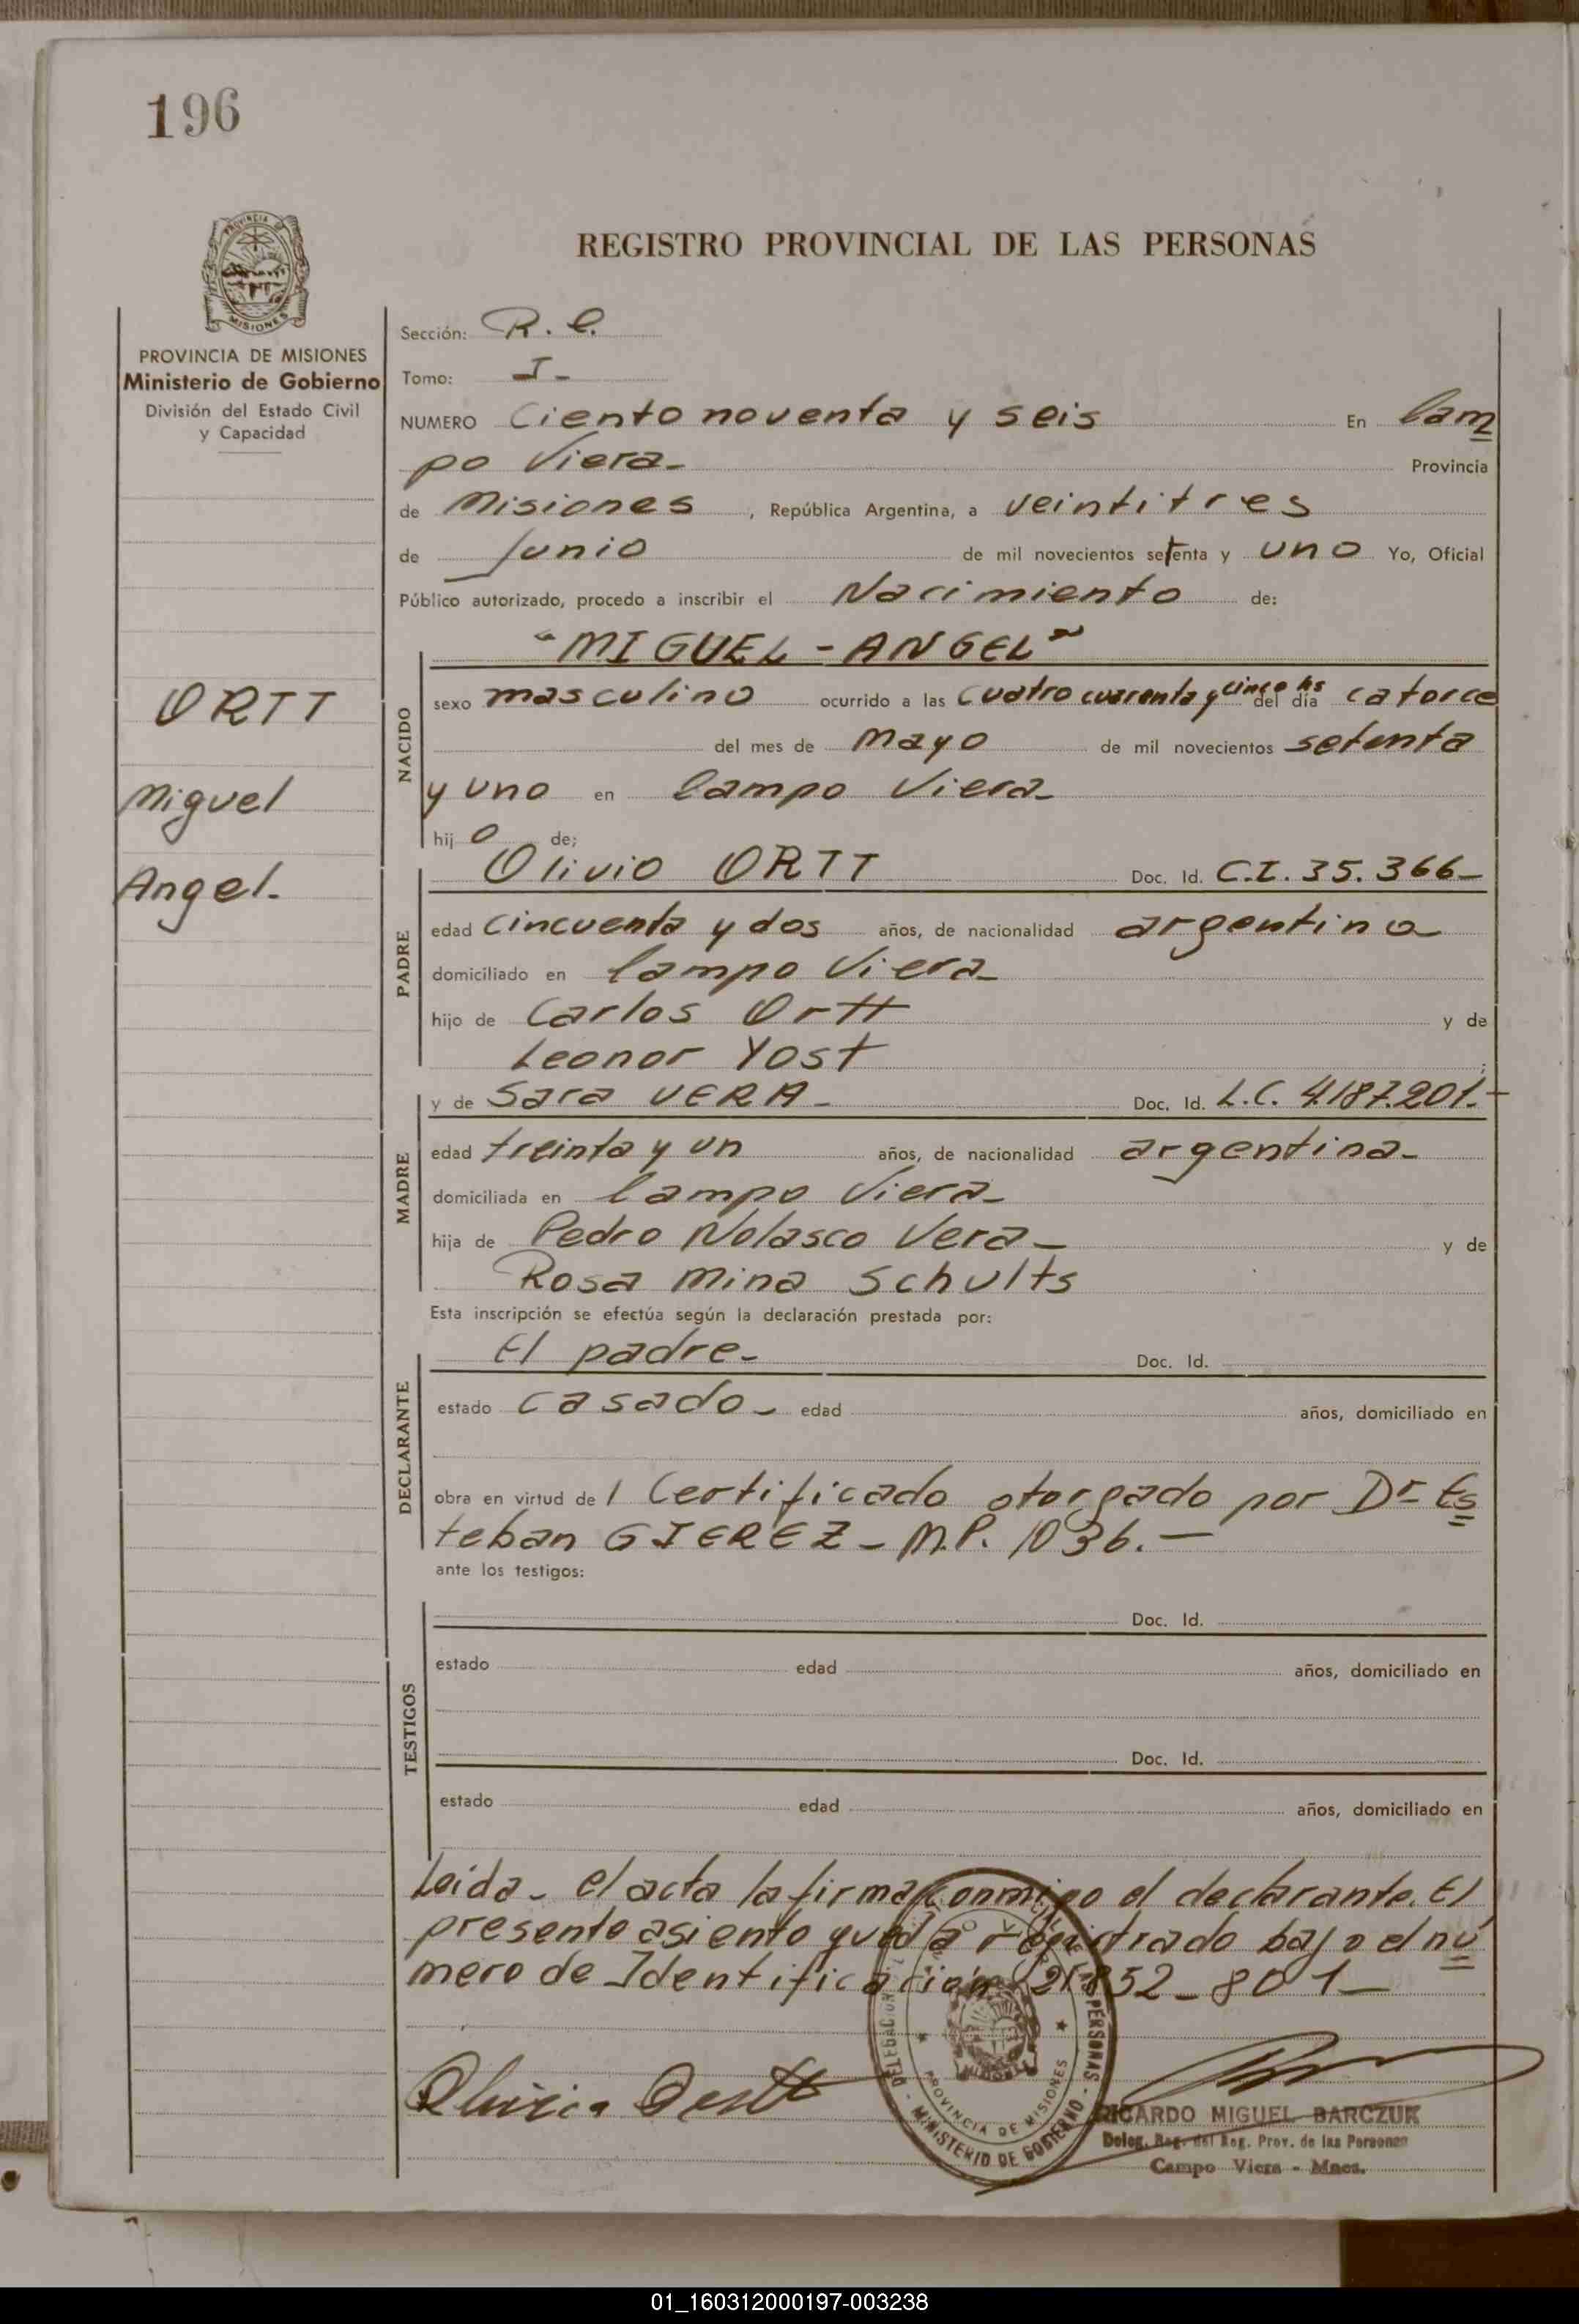 196
PROVINCIA DE MISIONES
Ministerio de Gobierno
División del Estado Civil
y Capacidad
ORTT
Miguel
Angel.
REGISTRO PROVINCIAL DE LAS PERSONAS
Sección: R. C.
Tomo: I-
NUMERO Ciento noventa y seis En Cam
po Viera- Provincia
de Misiones, República Argentina, a veintitres
de Junio de mil novecientos setenta y uno Yo, Oficial
Público autorizado, procedo a inscribir el Nacimiento de:
"MIGUEL-ANGEL"
NACIDO
sexo masculino ocurrido a las cuatro cuarenta y cinco hs del día catorce
del mes de mayo de mil novecientos setenta
y uno en Campo Viera-
hijo de;
PADRE
Olivio ORTT Doc. Id. C.I. 35.366-
edad cincuenta y dos años, de nacionalidad argentino
domiciliado en Campo Viera-
hijo de Carlos Ortt y de
Leonor Yost ;
MADRE
y de Sara VERA- Doc. Id. L.C. 4.187.201.-
edad treinta y un años, de nacionalidad argentina-
domiciliada en Campo Viera-
hija de Pedro Nolasco Vera- y de
Rosa Mina Schults
Esta inscripción se efectúa según la declaración prestada por:
DECLARANTE
El padre- Doc. Id.
estado casado- edad años, domiciliado en
obra en virtud de 1 Certificado otorgado por Dr Es
teban GIEREZ- M.P. 1036.-
ante los testigos:
TESTIGOS
Doc. Id.
estado edad años, domiciliado en
Doc. Id.
estado edad años, domiciliado en
Leida- el acta la firma conmigo el declarante. El
presente asiento queda registrado bajo el nú
mero de Identificación 21852-801-
PROVINCIA DE MISIONES
MINISTERIO DE GOBIERNO
RICARDO MIGUEL BARCZUK
Deleg. Reg. del Reg. Prov. de las Personas
Campo Viera - Mnes.
01_160312000197-003238